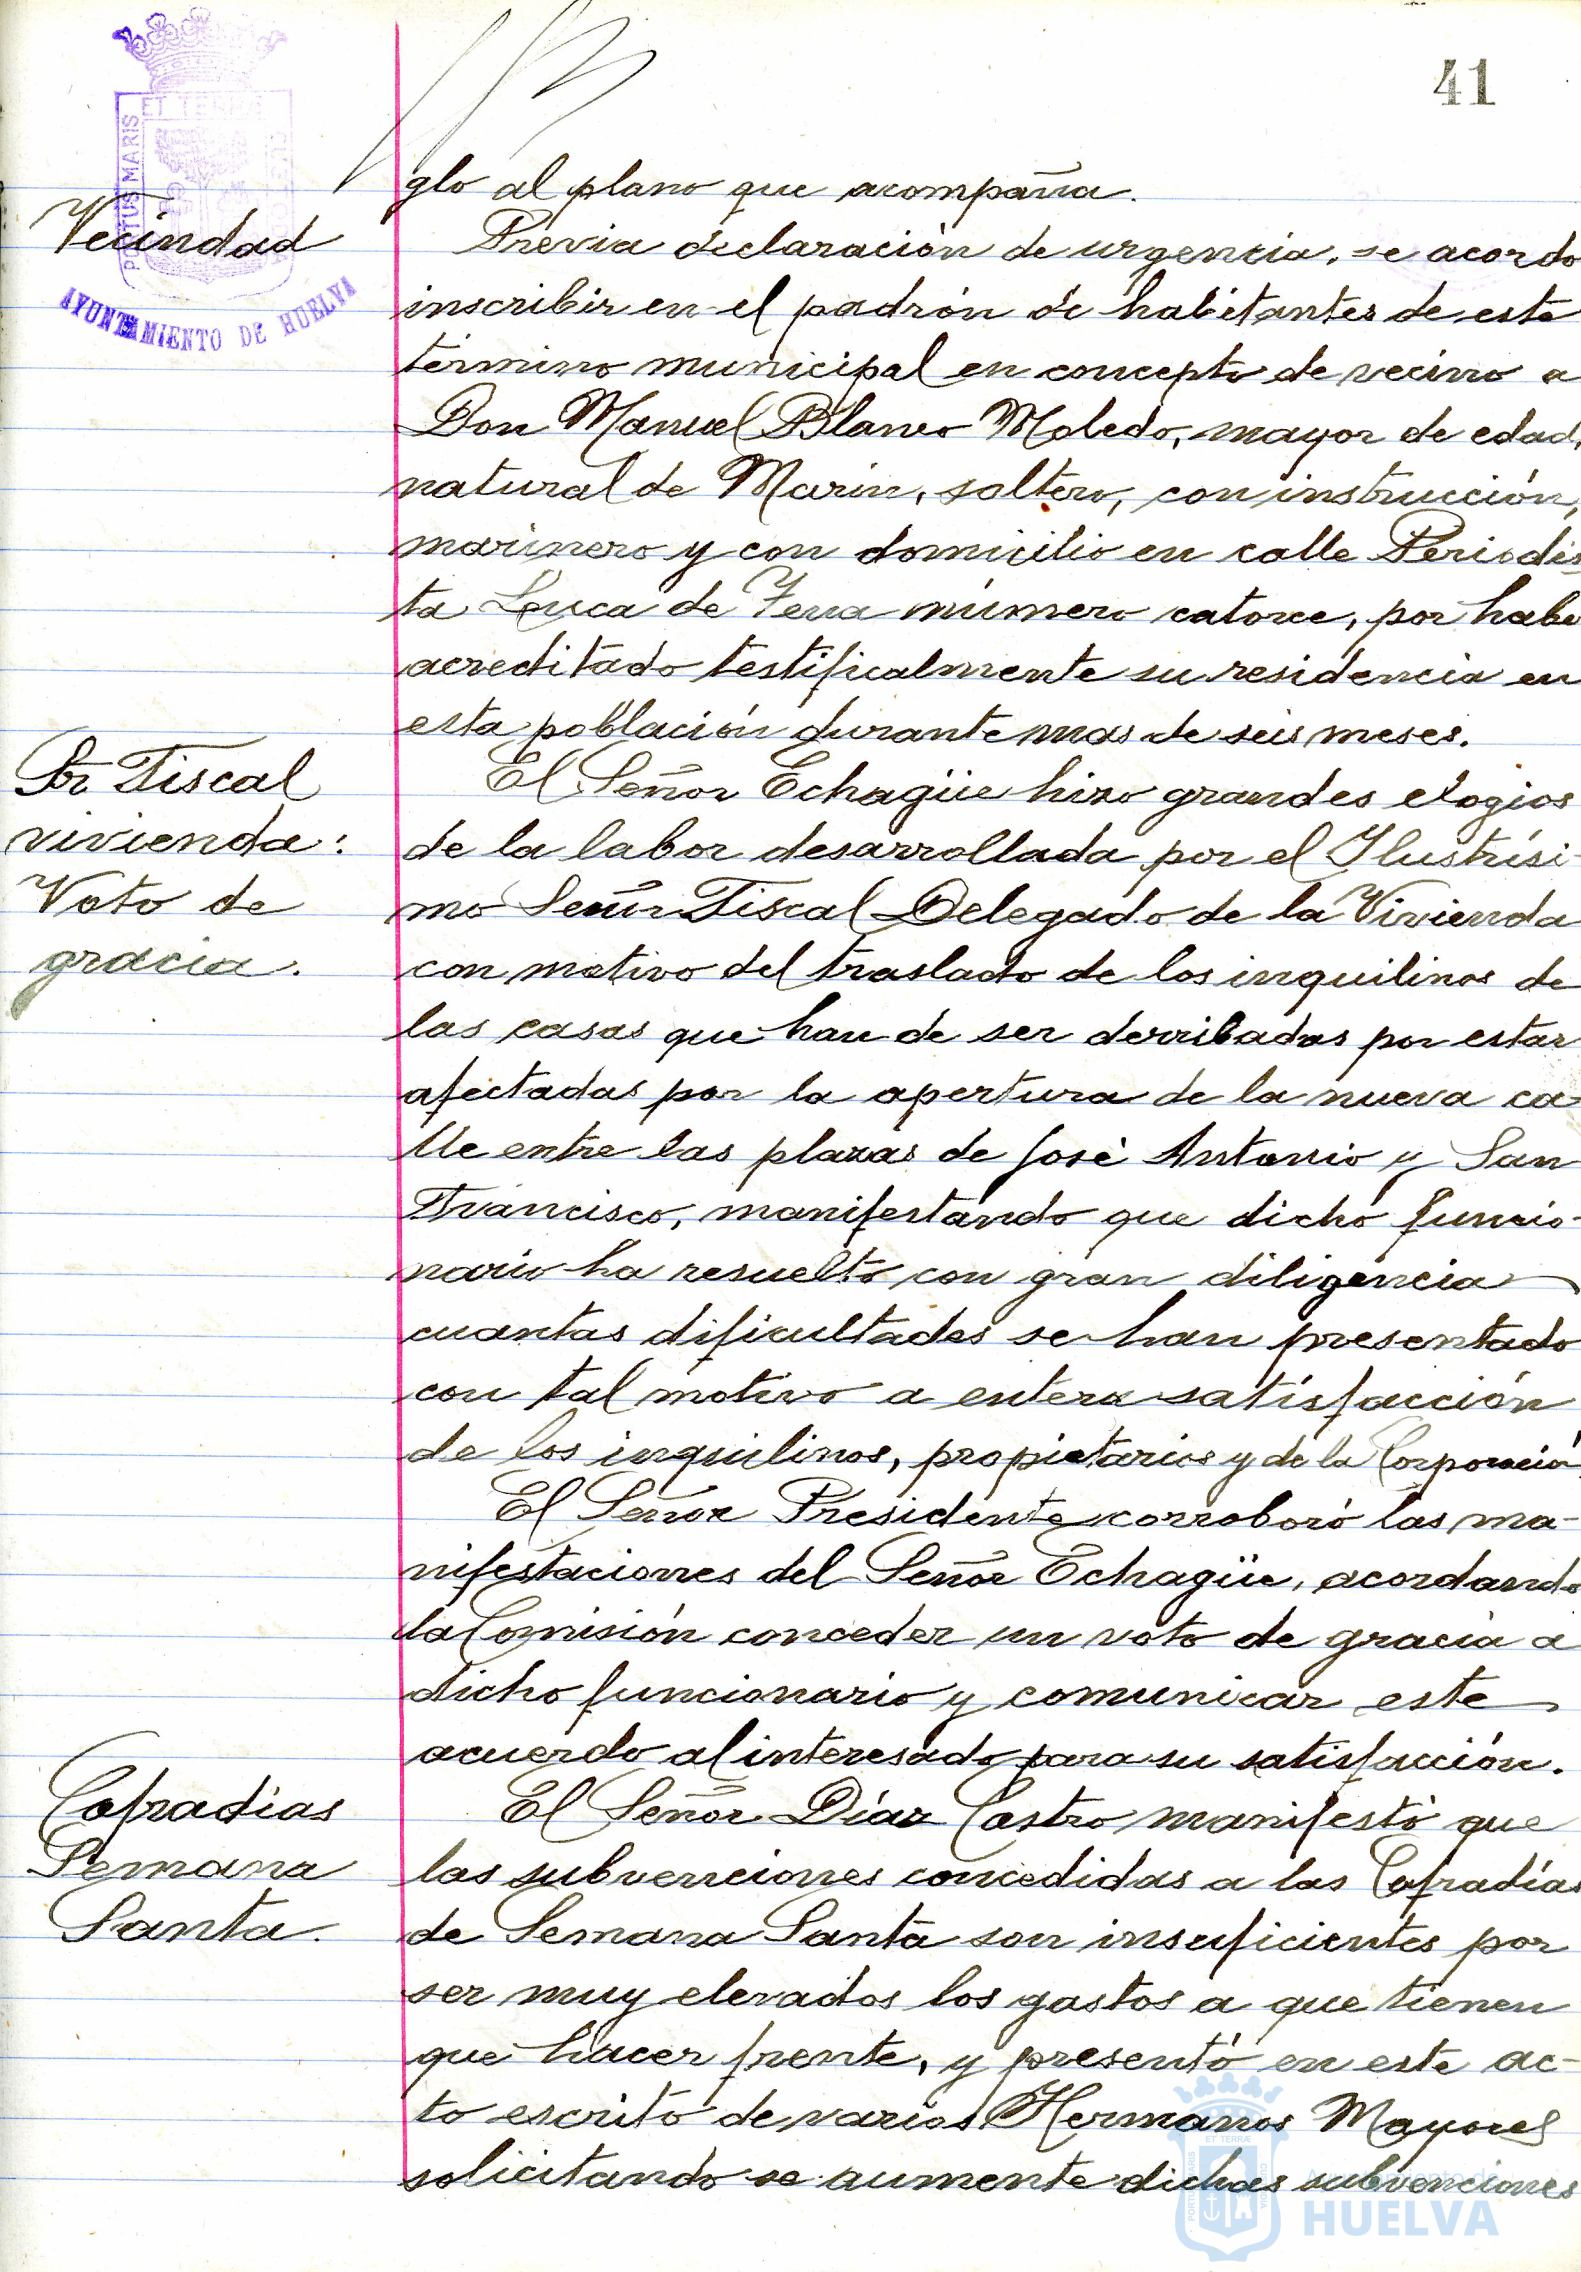 41
PORTUS MARIS ET TERRÆ CUSTODIA
AYUNTAMIENTO DE HUELVA
glo al plano que acompaña.
Vecindad
Previa declaración de urgencia, se acordo
inscribir en el padrón de habitantes de este
término municipal en concepto de vecino a
Don Manuel Blanco Moledo, mayor de edad,
natural de Marin, soltero, con instrucción,
marinero y con domicilio en calle Periodis
ta Luca de Tena número catorce, por habe
acreditado testificalmente su residencia en
esta población durante mas de seis meses.
Sr Fiscal
vivienda:
Voto de
gracia.
El Señor Echagüe hizo grandes elogios
de la labor desarrollada por el Ilustrísi-
mo Señor Fiscal Delegado de la Vivienda
con motivo del traslado de los inquilinos de
las casas que han de ser derribadas por estar
afectadas por la apertura de la nueva ca-
lle entre las plazas de José Antonio y San
Francisco, manifestando que dicho funcio-
nario ha resuelto con gran diligencia
cuantas dificultades se han presentado
con tal motivo a entera satisfacción
de los inquilinos, propietarios y de la Corporación
El Señor Presidente corroboró las ma-
nifestaciones del Señor Echagüe, acordando
la Comisión conceder un voto de gracia a
dicho funcionario y comunicar este
acuerdo al interesado para su satisfacción.
Cofradias
Semana
Santa.
El Señor Díaz Castro manifestó que
las subvenciones concedidas a las Cofradías
de Semana Santa son insuficientes por
ser muy elevados los gastos a que tienen
que hacer frente, y presentó en este ac-
to escrito de varios Hermanos Mayores
solicitando se aumente dichas subvenciones
Ayuntamiento de
HUELVA